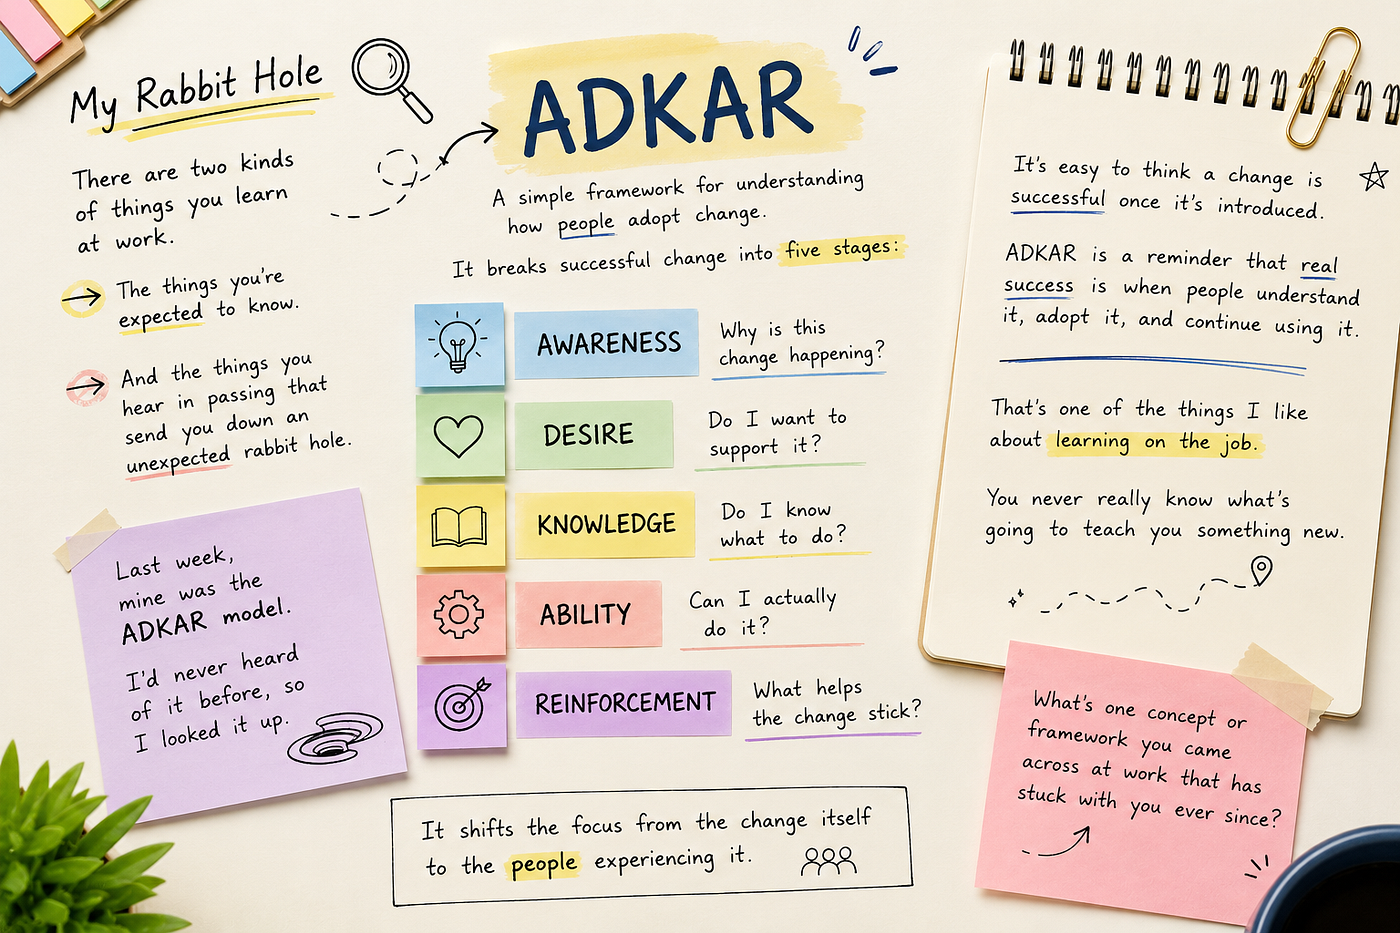 My Rabbit Hole
There are two kinds
of things you learn
at work.
The things you're
expected to know.
And the things you
hear in passing that
send you down an
unexpected rabbit hole.
Last week,
mine was the
ADKAR model.
I'd never heard
of it before, so
I looked it up.
ADKAR
A simple framework for understanding
how people adopt change.
It breaks successful change into five stages:
AWARENESS
Why is this
change happening?
DESIRE
Do I want to
support it?
KNOWLEDGE
Do I know
what to do?
ABILITY
Can I actually
do it?
REINFORCEMENT
What helps
the change stick?
It shifts the focus from the change itself
to the people experiencing it.
It's easy to think a change is
successful once it's introduced.
ADKAR is a reminder that real
success is when people understand
it, adopt it, and continue using it.
That's one of the things I like
about learning on the job.
You never really know what's
going to teach you something new.
What's one concept or
framework you came
across at work that has
stuck with you ever since?